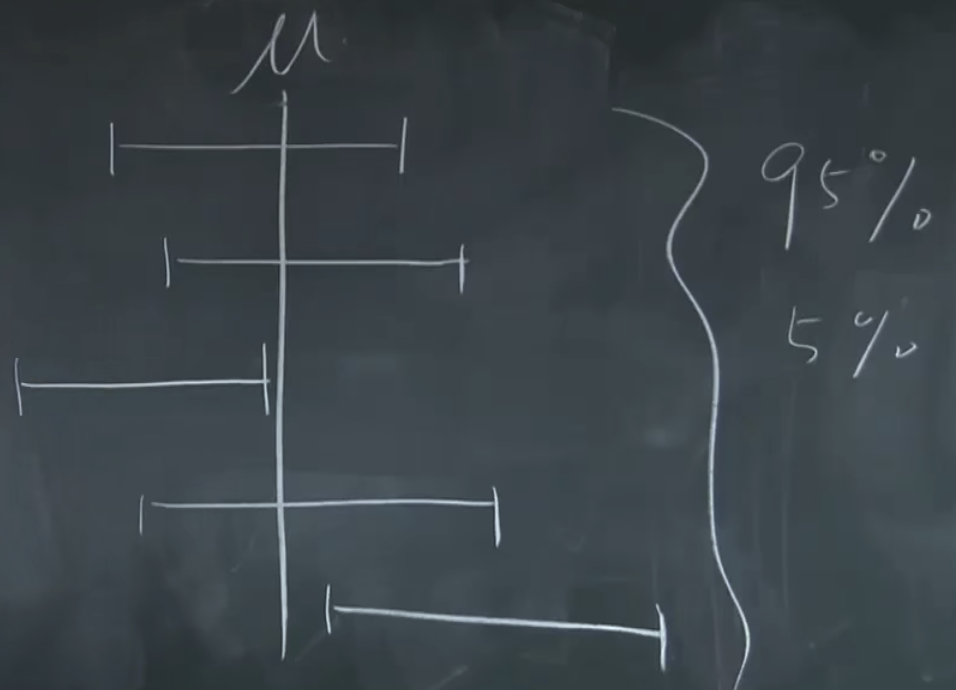 μ
95%
5%